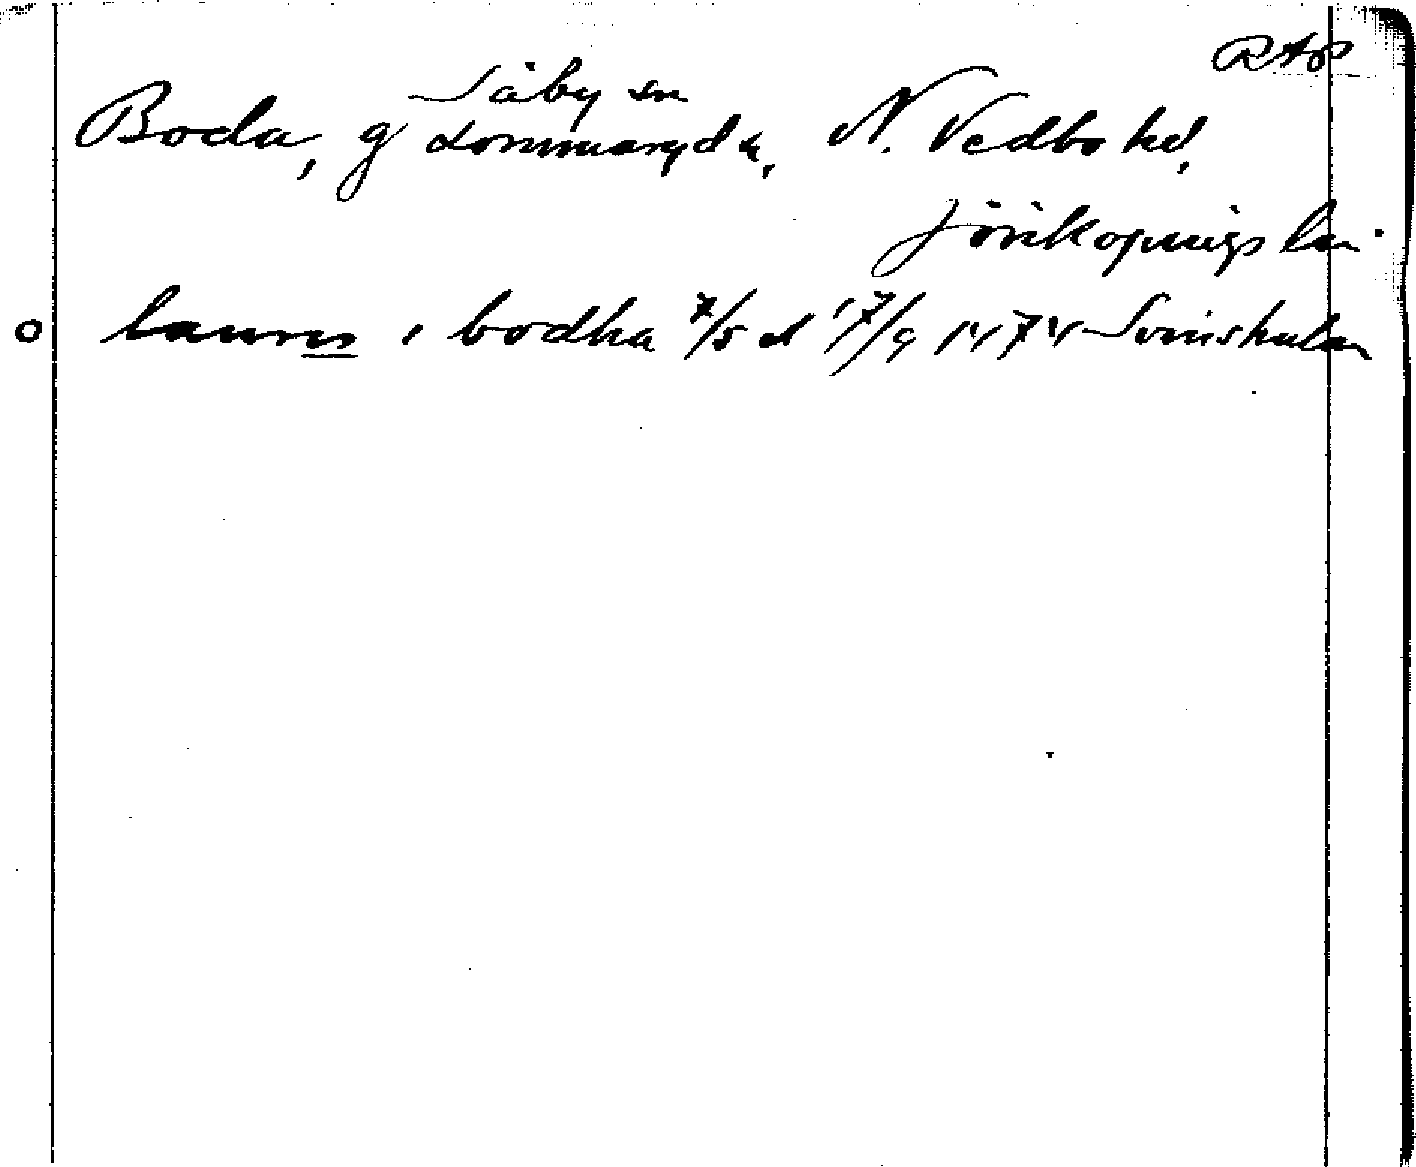 RAP
Säby sn
Boda, g Lommaryda, N. Vedbo hd,
Jönköpings län.
o laurens i bodha 7/5 d 17/9 1474 Svinshulan